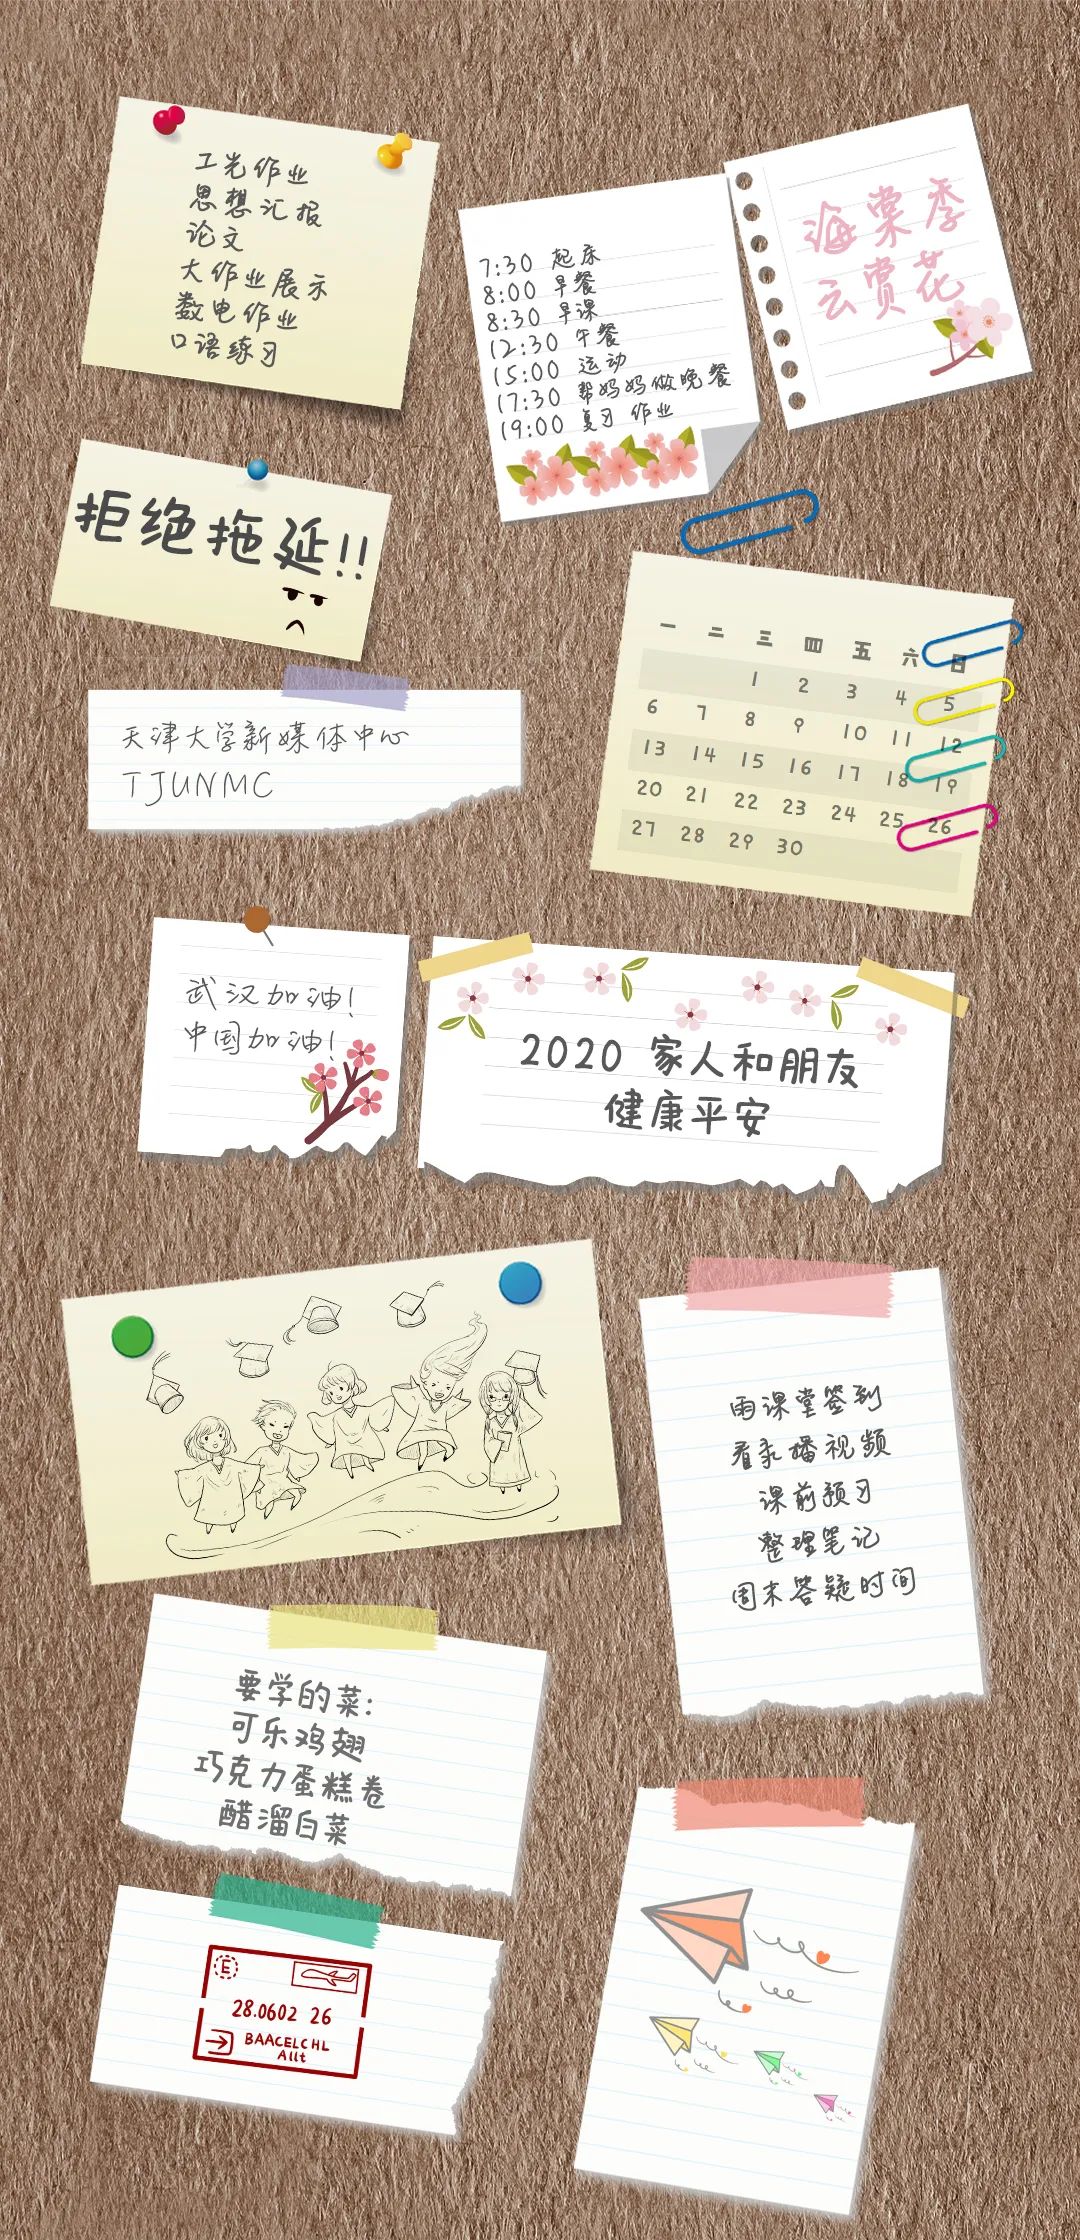 工光作业
思想汇报
论文
大作业展示
数电作业
口语练习
7:30 起床
8:00 早餐
8:30 早课
12:30 午餐
15:00 运动
17:30 帮妈妈做晚餐
19:00 复习 作业
海棠季
云赏花
拒绝拖延!!
一 二 三 四 五 六 日
1 2 3 4 5
6 7 8 9 10 11 12
13 14 15 16 17 18 19
20 21 22 23 24 25 26
27 28 29 30
天津大学新媒体中心
TJUNMC
武汉加油!
中国加油!
2020 家人和朋友
健康平安
雨课堂签到
看录播视频
课前预习
整理笔记
周末答疑时间
要学的菜:
可乐鸡翅
巧克力蛋糕卷
醋溜白菜
E
28.0602 26
BAACELCHL
Allt